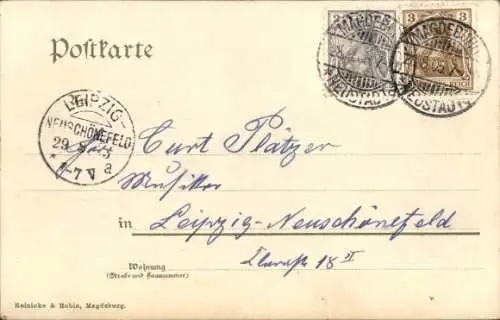 Postkarte
2
3 3
MAGDEBURG
NEUSTADT
MAGDEBURG
NEUSTADT
LEIPZIG-
NEUSCHÖNEFELD
29.8. 5
* 1-7 V a
Curt Plätzer
Musiker
in Leipzig-Neuschönefeld
Clarastr 18 II
Wohnung
(Straße und Hausnummer)
Reinicke & Rubin, Magdeburg.